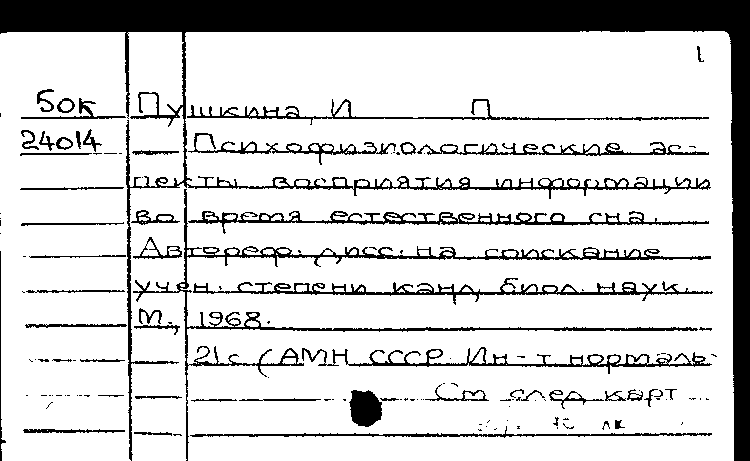 1
Бок Пушкина, И П
24014 Психофизиологические ас-
пекты восприятия информации
во время естественного сна.
Автореф. дисс. на соискание
учен. степени канд. биол. наук.
М., 1968.
21 с (АМН СССР. Ин-т нормаль-
См след карт